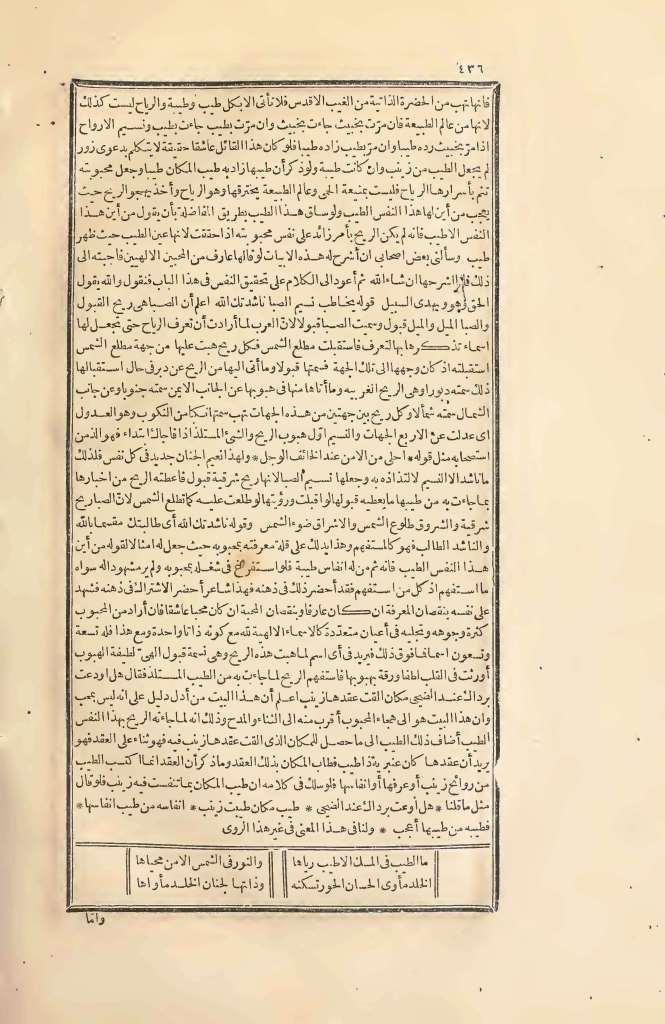 ٤٣٦
فانها تهب من الحضرة الذاتية من الغيب الاقدس فلا تأتى الا بكل طيب وطيبة والرياح ليست كذلك
لانها من عالم الطبيعة فان مرّت بخبيث جاءت بخبيث وان مرّت بطيب جاءت بطيب ونسيم الارواح
اذا مرّ بخبيث رده طيبا وان مرّ بطيب زاده طيبا فلو كان هذا القائل عاشقا حقيقة لا يتكلم بدعوى زور
لم يجعل الطيب من زينب وان كانت طيبة ولوذ كر أن طيبها زاد به طيب المكان طيبا وجعل محبوبته
تنم بأسرارها الرياح فليست بمنيعة الحمى وعالم الطبيعة يخترقها وهو الرياح وأخذ يهجو الريح حيث
يعجب من أين لها هذا النفس الطيب ولو ساق هذا الطيب بطريق المفاضلة بأن يقول من أين هذا
النفس الاطيب فانه لم يكن الريح بأمر زائد على نفس محبوبته اذا حققت لانها عين الطيب حيث ظهر
طيب وسألنى بعض اصحابى ان أشرح له هذه الابيات لو قالها عارف من المحبين الالهيين فاجبته الى
ذلك فلنشرحها ان شاء الله ثم أعود الى الكلام على تحقيق النفس فى هذا الباب فنقول والله يقول
الحق وهو يهدى السبيل قوله يخاطب نسيم الصبا ناشدتك الله اعلم أن الصبا هى ريح القبول
والصبا الميل والميل قبول وسميت الصبا قبولا لانّ العرب لما أرادت أن تعرف الرياح حتى تجعل لها
اسماء تذكرها بها لتعرف فاستقبلت مطلع الشمس فكل ريح هبت عليها من جهة مطلع الشمس
استقبلته اذ كان وجهها الى تلك الجهة فسمتها قبولا وما أتى اليها من الريح عن دبر فى حال استقبالها
ذلك سمته دبورا وهى الريح الغربيه وما أتاها منها فى هبوبها عن الجانب الايمن سمته جنوبا وعن جانب
الشمال سمته شمالا وكل ريح بين جهتين من هذه الجهات تهب سمتها نكبا من النكوب وهو العدول
اى عدلت عن الاربع الجهات والنسيم اوّل هبوب الريح والشئ المستلذ اذا فاجاك ابتداء فهو الذ من
استصحابه مثل قوله * احلى من الامن عند الخائف الوجل * ولهذا نعيم الجنان جديد فى كل نفس فلذلك
ما ناشد الا النسيم لالتذاذه به وجعلها نسيم الصبا لانها ريح شرقية قبول فاعطته الريح من اخبارها
بما جاءت به من طيبها ما يعطيه قبولها لو اقبلت ورؤيتها لو طلعت عليه كما تطلع الشمس لانّ الصبا ريح
شرقية والشروق طلوع الشمس والاشراق ضوء الشمس وقوله ناشدتك الله أى طالبتك مقسما بالله
والناشد الطالب فهو كالمستفهم وهذا يدلك على قلة معرفته بمحبوبه حيث جعل له امثالا لقوله من أين
هذا النفس الطيب فانه ثم من له انفاس طيبة فلو استفرغ فى شغله بمحبوبه ولم ير مشهودا له سواه
ما استفهم اذ كل من استفهم فقد أحضر ذلك فى ذهنه فهذا شاعر أحضر الاشتراك فى ذهنه فشهد
على نفسه بنقصان المعرفة ان كان عارفا وبنقصان المحبة ان كان محبا عاشقا فان أراد من المحبوب
كثرة وجوهه وتجليه فى أعيان متعدّدة كالاسماء الالهية لله مع كونه ذاتا واحدة ومع هذا فله تسعة
وتسعون اسما فما فوق ذلك فيريد فى أى اسم لما هبت هذه الريح وهى نسمة قبول الهىّ لطيفة الهبوب
أورثت فى القلب لطفا ورقة بهبوبها فاستفهم الريح لما جاءت به من الطيب المستلذ فقال هل اودعت
بردال عند الضحى مكان القت عقدها زينب اعلم أن هذا البيت من أدل دليل على انه ليس بمحب
وان هذا البيت هو الى هجاء المحبوب أقرب منه الى الثناء والمدح وذلك انه لما جاءته الريح بهذا النفس
الطيب أضاف ذلك الطيب الى ما حصل للمكان الذى القت عقدها زينب فيه فهو ثناء على العقد فهو
يريد أن عقدها كان عنبريا ذا طيب فطاب المكان بذلك العقد وما ذكر أن العقد انما اكتسب الطيب
من روائح زينب أو عرفها أو انفاسها فلو سلك فى كلامه ان طيب المكان بما تنفست فيه زينب فلو قال
مثل ما قلنا * هل أوعت بردال عند الضحى * طيب مكان طيبت زينب * انفاسه من طيب انفاسها *
فطيبه من طيبها أعجب * ولنا فى هذا المعنى فى غير هذا الروى
ما الطيب فى المسك الا طيب رياها والنور فى الشمس الا من محياها
الخلد مأوى الحسان الحور تسكنه وذاتها لجنان الخلد مأواها
وامّا